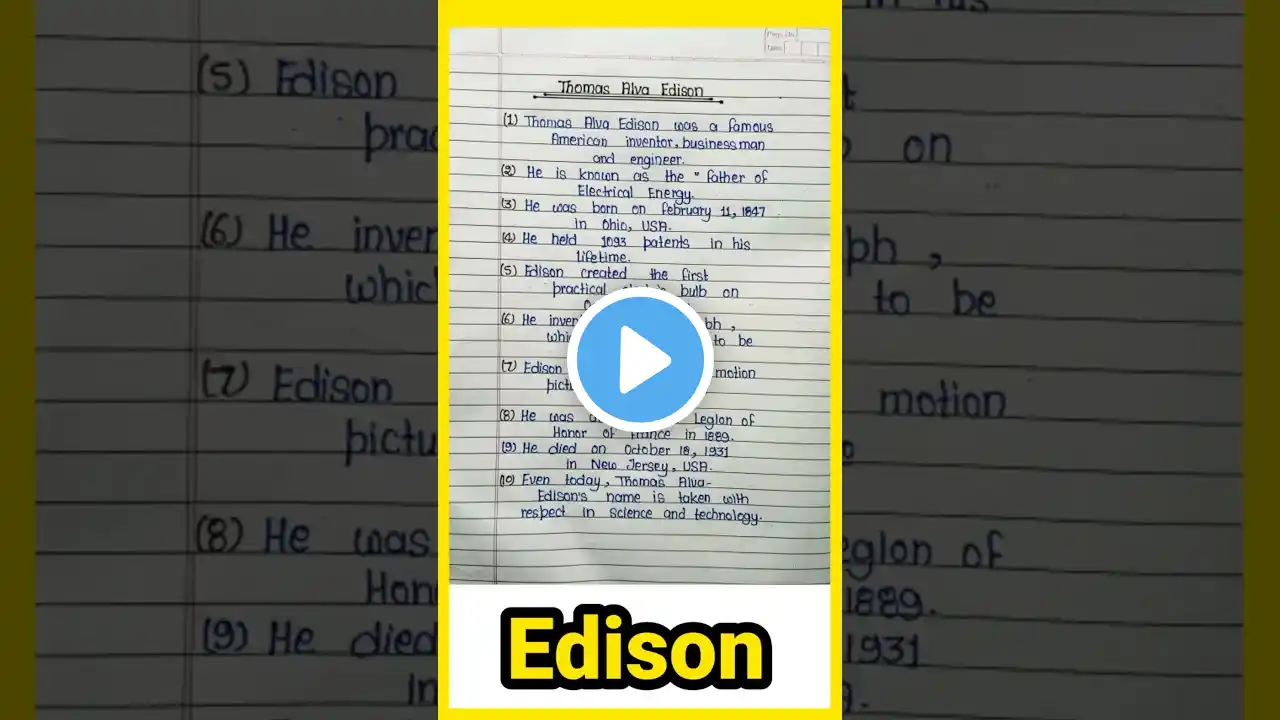 (5) Edison
prac
(6) He inver
whic
(7) Edison
pictu
(8) He was
Hon
(9) He died
in
Thomas Alva Edison
(1) Thomas Alva Edison was a famous
American inventor, businessman
and engineer.
(2) He is known as the " father of
Electrical Energy.
(3) He was born on february 11, 1847
in Ohio, USA.
(4) He held 1093 patents in his
lifetime.
(5) Edison created the first
practical bulb on
(6) He inven bph,
whi to be
(7) Edison motion
pict
(8) He was Legion of
Honor of France in 1889.
(9) He died on October 18, 1931
in New Jersey, USA.
(10) Even today, Thomas Alva-
Edison's name is taken with
respect in science and technology.
Edison
in his
on
ph,
to be
motion
eglon of
1889.
1931